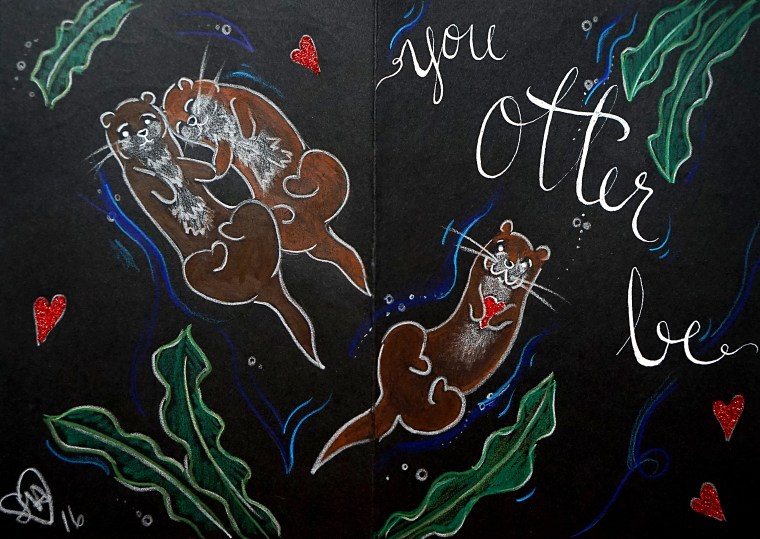 you
otter
be
16